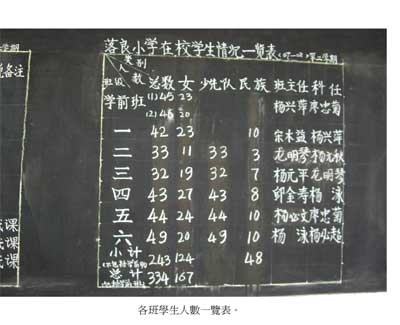 落良小学在校学生情况一览表(07-08)第二学期
类别
人数
班级 总数 女 少先队 民族 班主任 科任
学前班 (1)45 23 杨兴萍 廖忠菊
(2)45 20
一 42 23 10 宋木益 杨兴萍
二 33 11 33 3 龙明琴 杨元秋
三 32 19 32 7 杨元平 龙明琴
四 43 27 43 8 邱全寿 杨泳
五 44 24 44 10 杨必文 廖忠菊
六 49 20 49 10 杨泳 杨必超
小计 243 124 48
总计 334 167
备注
课
课
课
各班學生人數一覽表。